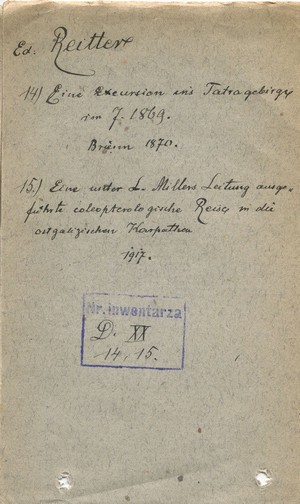 Ed. Reitter
14) Eine Excursion ins Tatragebirge
im J. 1869.
Brünn 1870.
15.) Eine unter L. Millers Leitung ausge-
führte coleopterologische Reise in die
ostgalizischen Karpathen
1917.
Nr. inwentarza
D. XX
14, 15.